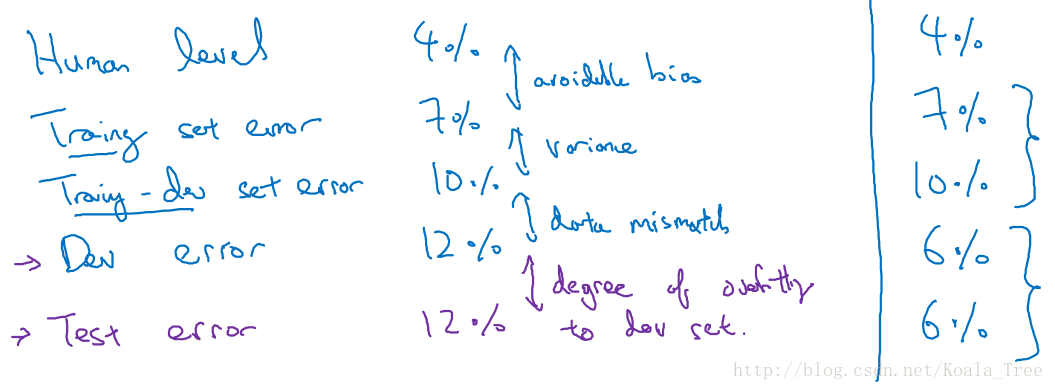 Human level 4% 4%
avoidable bias
Training set error 7% 7%
variance
Training-dev set error 10% 10%
data mismatch
→ Dev error 12% 6%
degree of overfitting
→ Test error 12% to dev set. 6%
http://blog.csdn.net/Koala_Tree